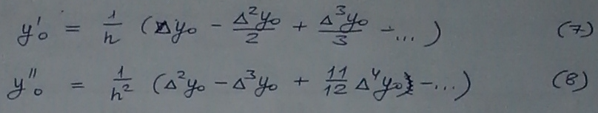 y'₀ = 1/h (Δy₀ - Δ²y₀/2 + Δ³y₀/3 - ...) (7)
y''₀ = 1/h² (Δ²y₀ - Δ³y₀ + 11/12 Δ⁴y₀ - ...) (8)